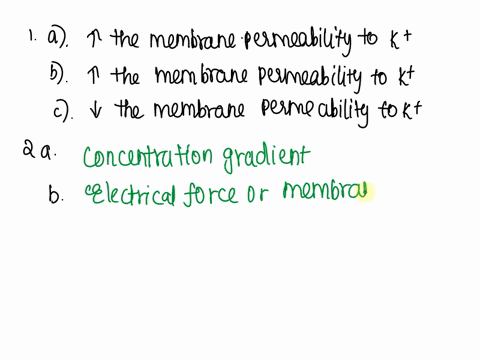 1. a). ↑ the membrane permeability to K+
b). ↑ the membrane permeability to K+
c). ↓ the membrane permeability to K+
2 a. concentration gradient
b. electrical force or membra